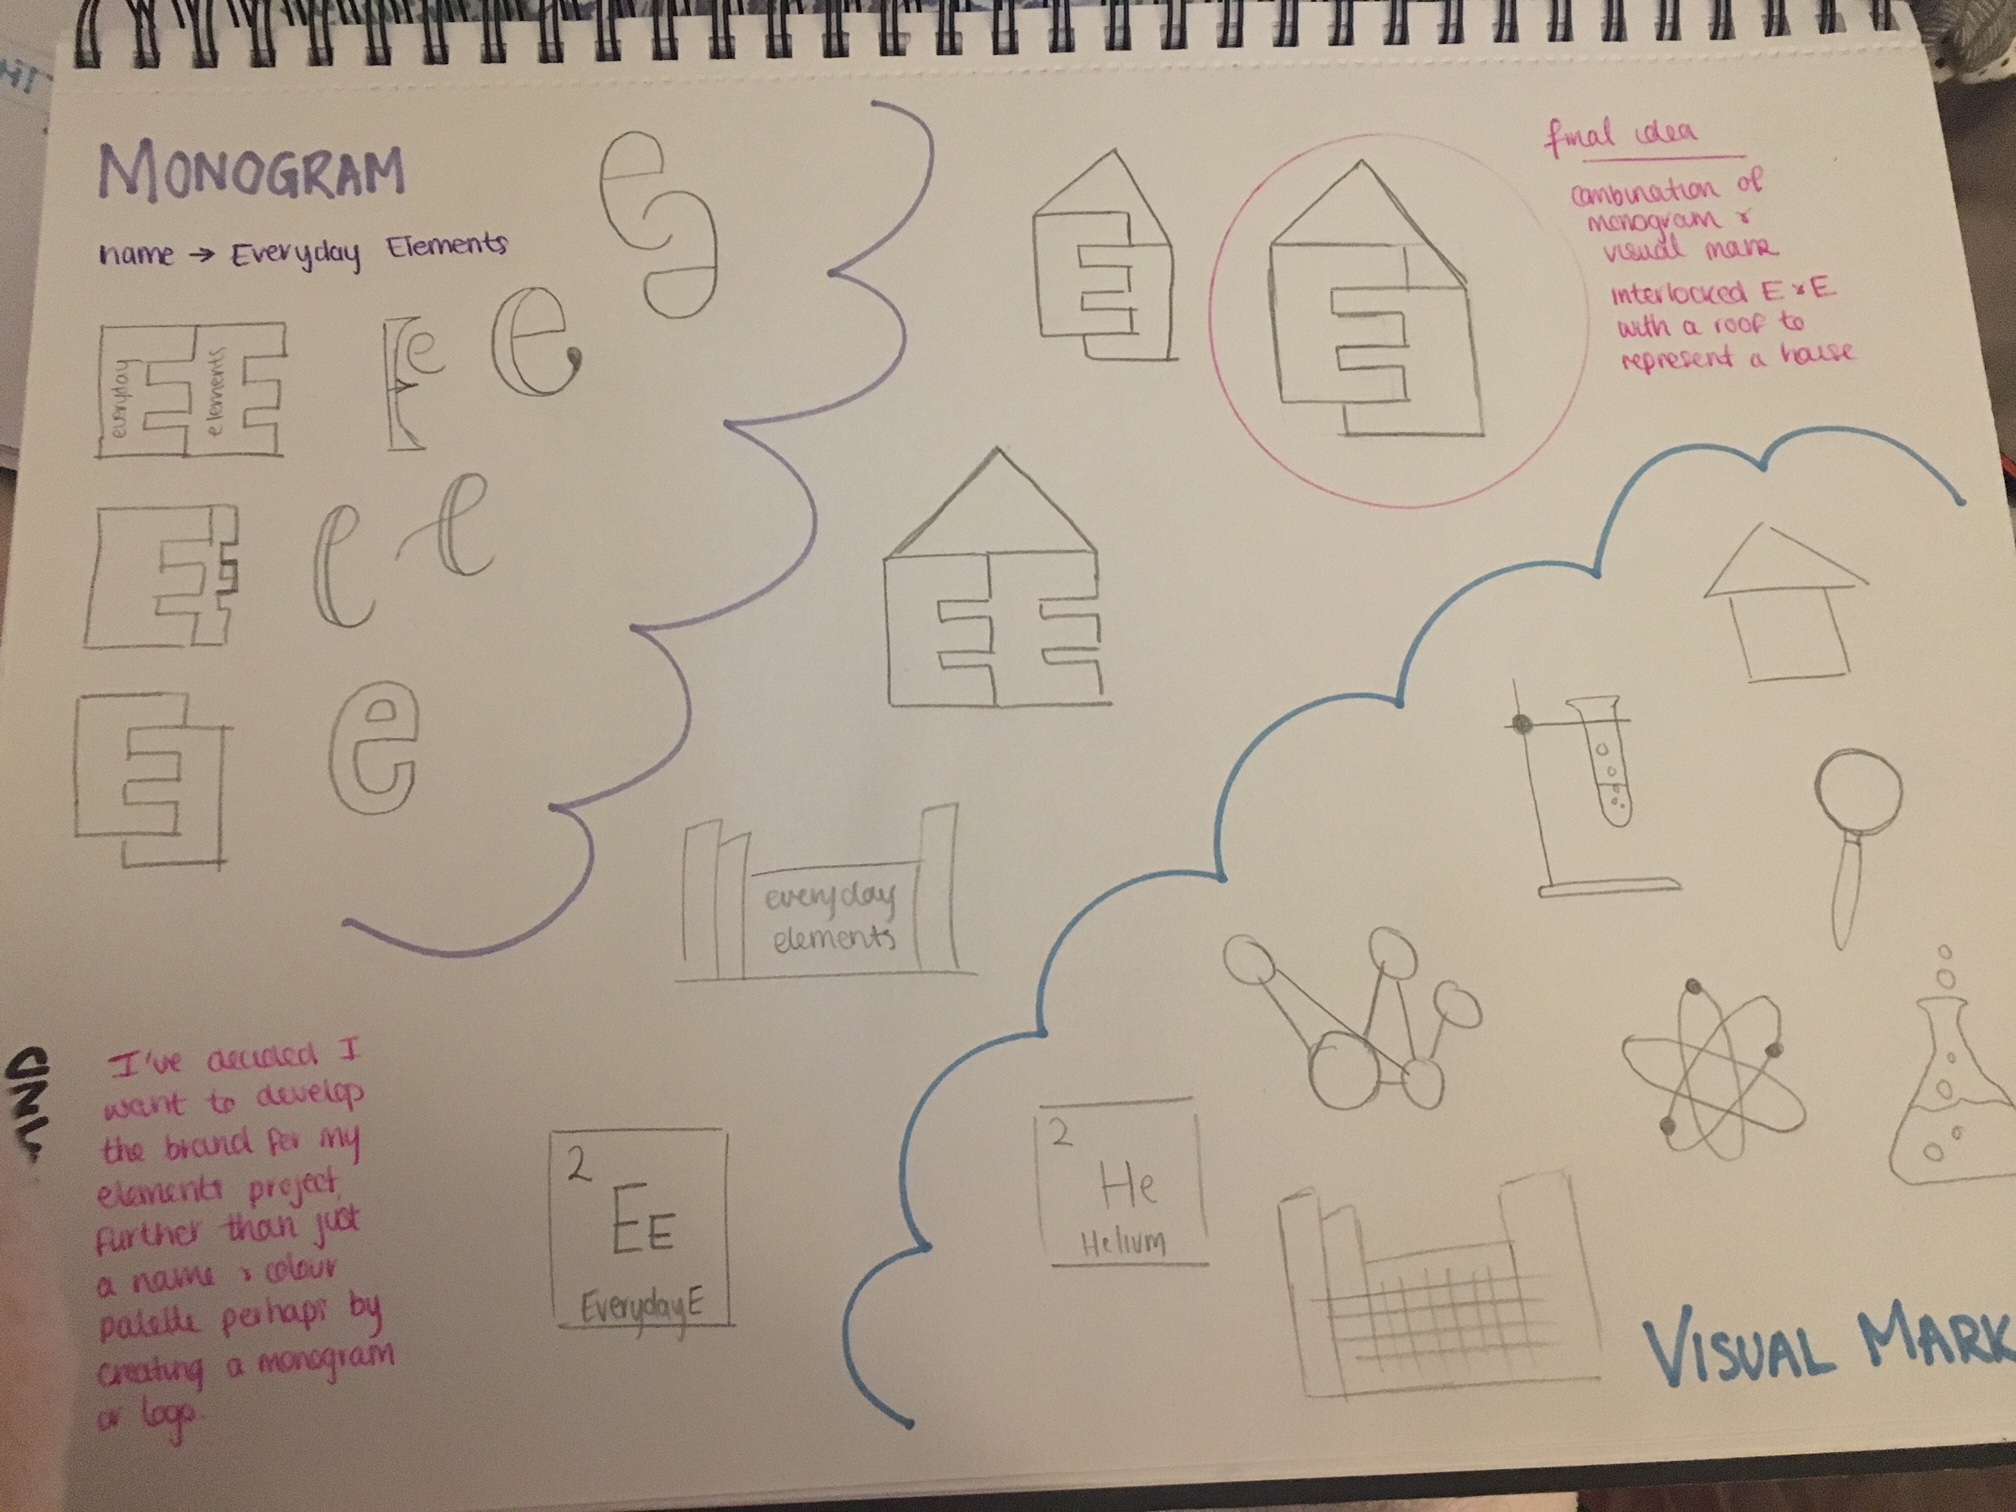 MONOGRAM
name → Everyday Elements
everyday
elements
final idea
combination of
monogram &
visual mark
interlocked E & E
with a roof to
represent a house
everyday
elements
I've decided I
want to develop
the brand for my
elements project
further than just
a name & colour
palette perhaps by
creating a monogram
or logo.
2
EE
EverydayE
2
He
Helium
VISUAL MARK